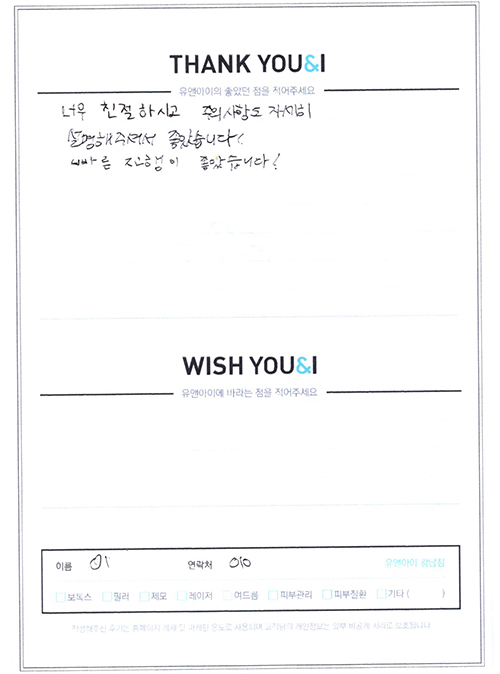 THANK YOU&I
유앤아이의 좋았던 점을 적어주세요
너무 친절하시고 주의사항도 자세히
설명해주셔서 좋았습니다!
빠른 진행이 좋았습니다!
WISH YOU&I
유앤아이에 바라는 점을 적어주세요
이름 이 연락처 010 유앤아이 강남점
보톡스 필러 제모 레이저 여드름 피부관리 피부질환 기타 ( )
작성해주신 후기는 홈페이지 게재 및 마케팅 용도로 사용되며 고객님의 개인정보는 일부 비공개 처리로 보호됩니다